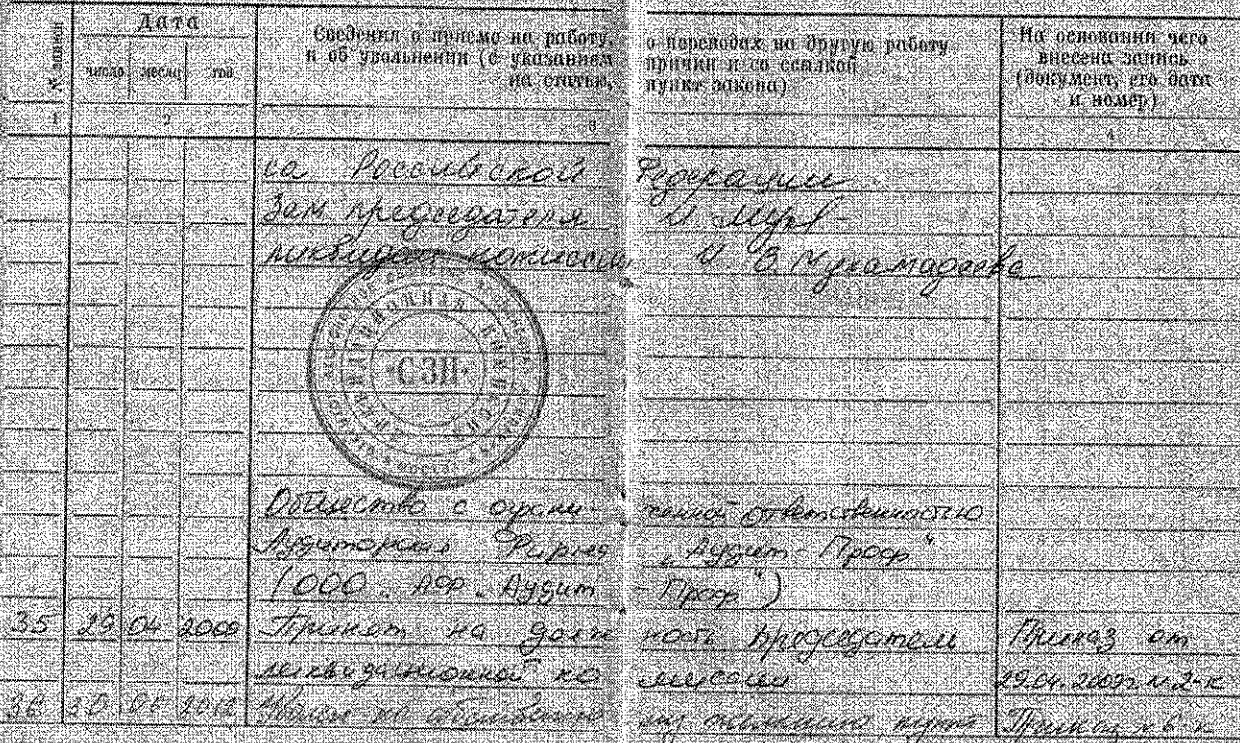 № записи
Дата
Сведения о приеме на работу, о переводах на другую работу
и об увольнении (с указанием причин и со ссылкой
на статью, пункт закона)
На основании чего
внесена запись
(документ, его дата
и номер)
число месяц год
1 2 3 4
са Российской Федерации
Зам председателя
ликвидац комиссии И В Мухамадеева
СЗП
Общество с ограниченной ответственностью
Аудиторская Фирма „Аудит-Проф"
(ООО „АФ „Аудит-Проф")
35 29 04 2009 Принят на должность председателя Приказ от
ликвидационной комиссии 29.04.2009г. N 2-к
36 30 Уволен по собственному желанию пункт Приказ N 6-к